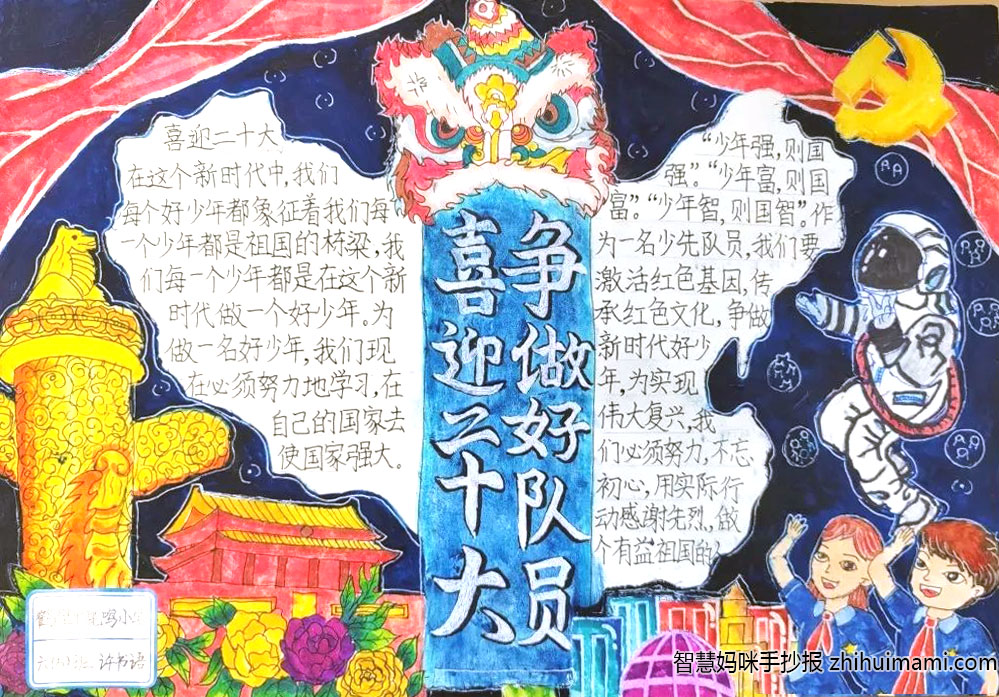 喜迎二十大
争做好队员
喜迎二十大
在这个新时代中,我们
每个好少年都象征着我们每
一个少年都是祖国的桥梁,我
们每一个少年都是在这个新
时代做一个好少年。为
做一名好少年,我们现
在必须努力地学习,在
自己的国家去
使国家强大。
“少年强,则国
强”。“少年富,则国
富”。“少年智,则国智”。作
为一名少先队员,我们要
激活红色基因,传
承红色文化,争做
新时代好少
年,为实现
伟大复兴,我
们必须努力,不忘
初心,用实际行
动感谢先烈,做
个有益祖国的
许书语
智慧妈咪手抄报 zhihuimami.com